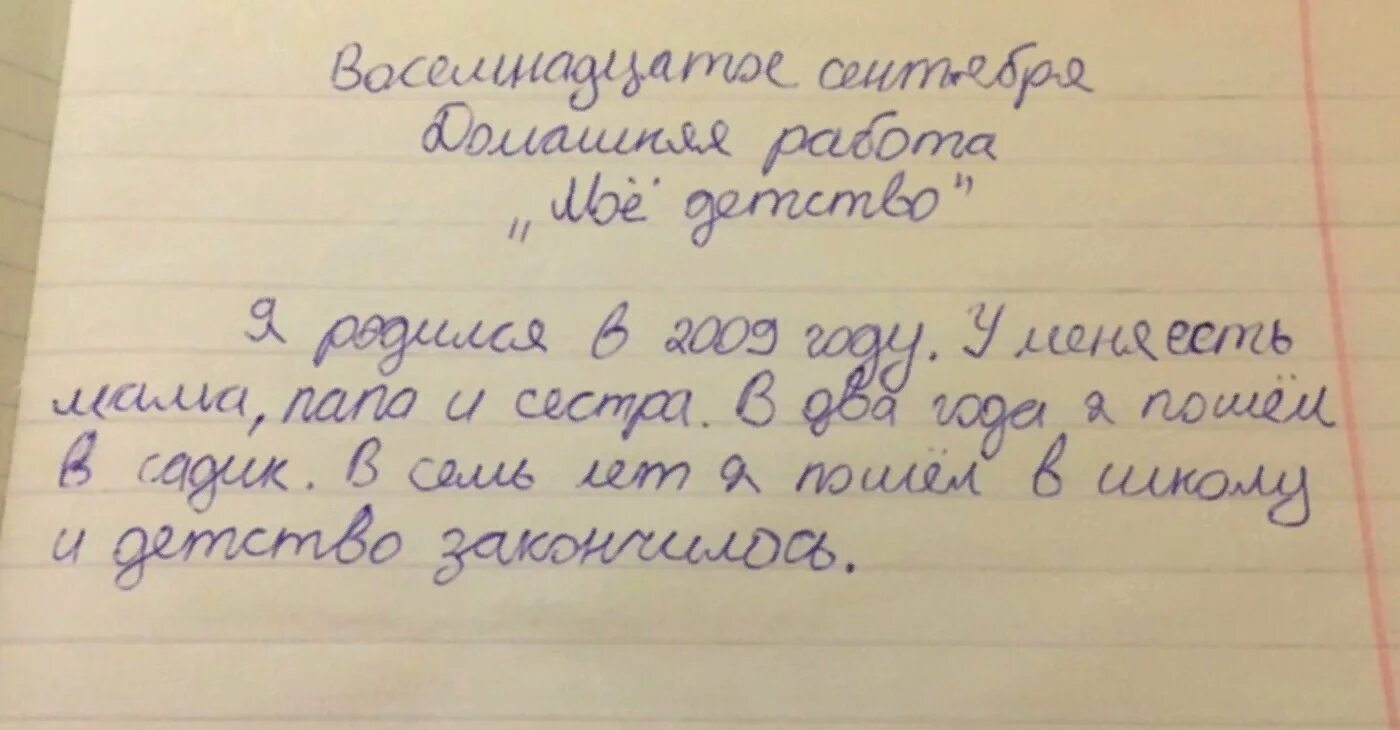 Восемнадцатое сентября
Домашняя работа
„Моё детство”
Я родился в 2009 году. У меня есть
мама, папа и сестра. В два года я пошёл
в садик. В семь лет я пошёл в школу
и детство закончилось.